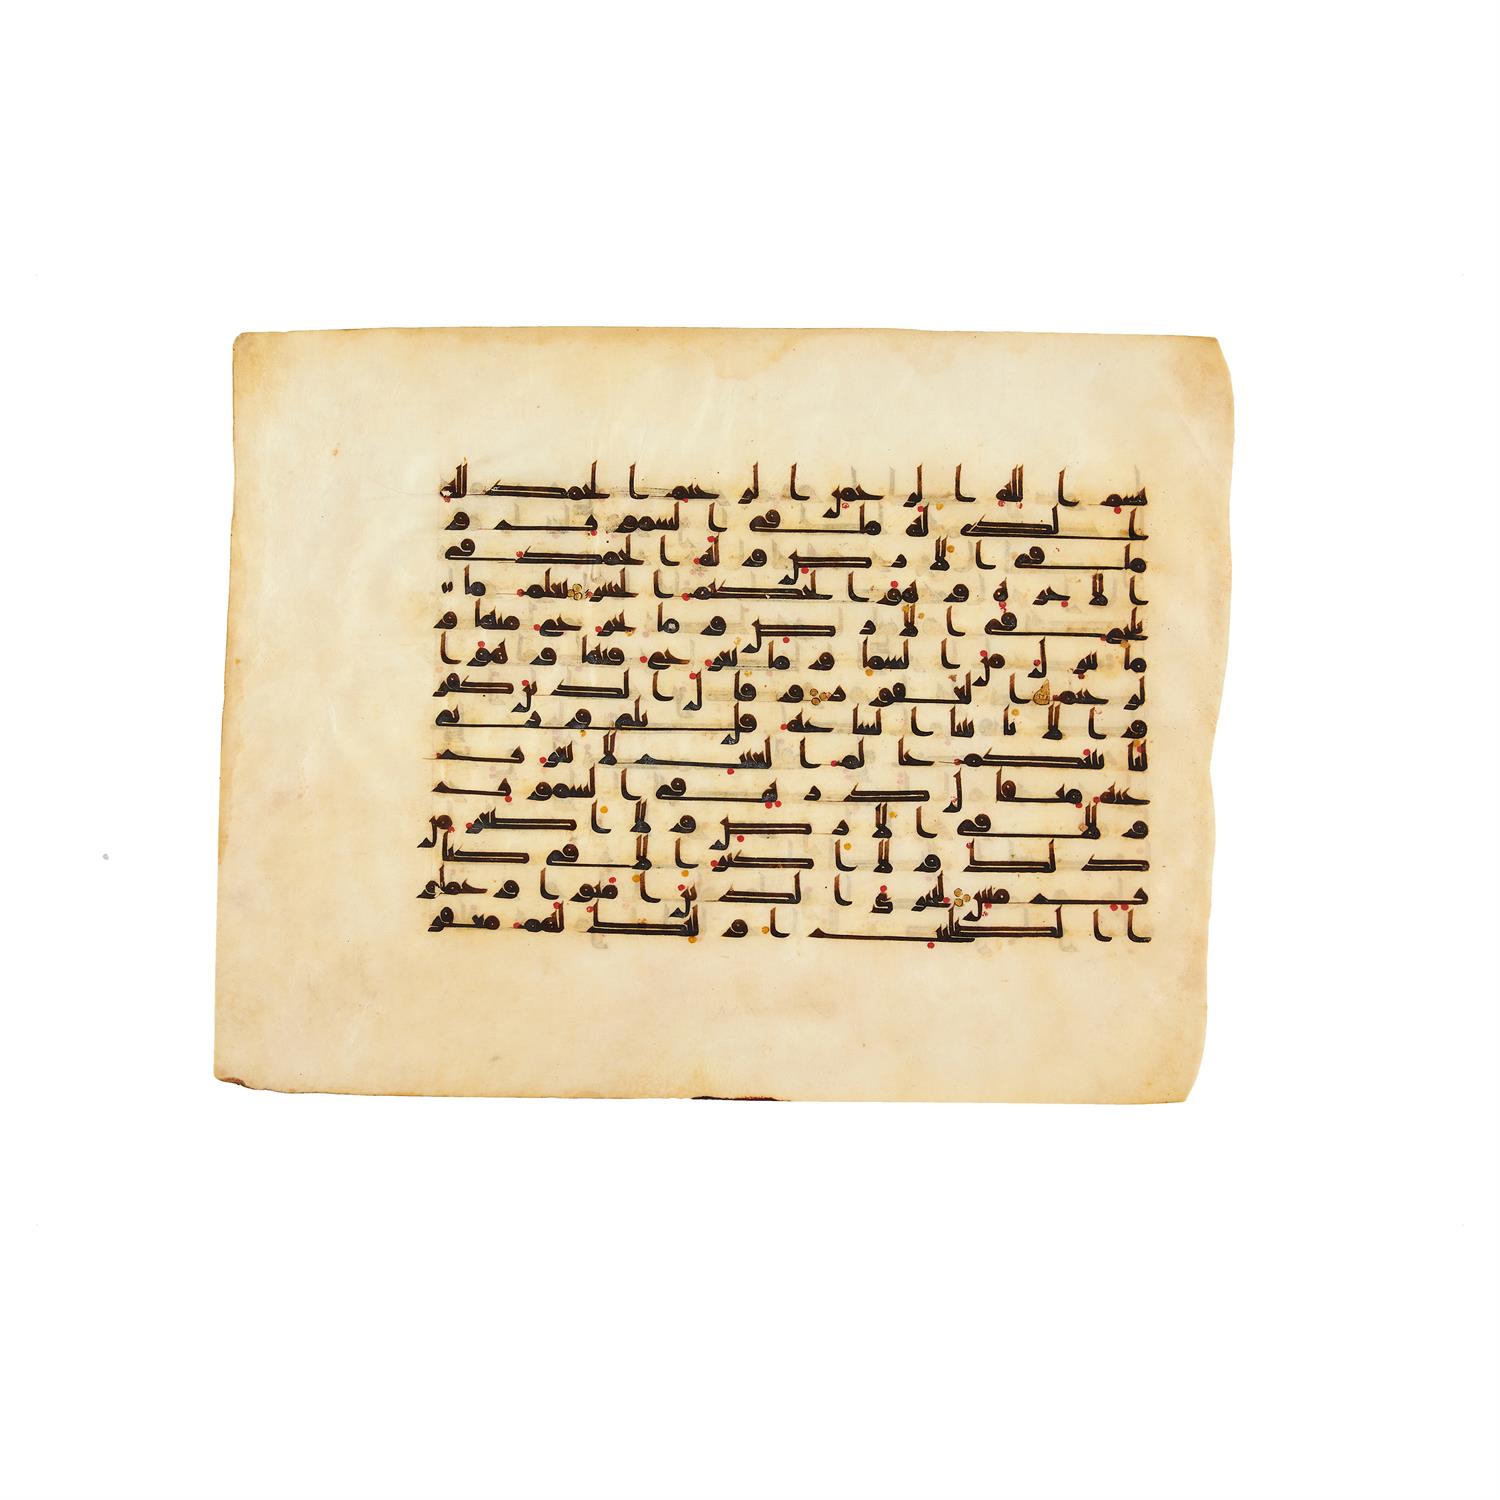 بسم الله الرحمن الرحيم الحمد لله
الذي له ما في السموت و
ما في الارض وله الحمد في
الاخرة وهو الحكيم الخبير يعلم ما
يلج في الارض وما يخرج منها و
ما ينزل من السما وما يعرج فيها وهو ا
لرحيم الغفور وقال الذين كفر
وا لا تاتينا الساعة قل بلى وربي
لتاتينكم عالم الغيب لا يعزب
عنه مثقال ذرة في السموت
ولا في الارض ولا اصغر من
ذلك ولا اكبر الا في كتا
ب مبين ليجزي الذين امنوا وعملو
ا الصلحت اولئك لهم مغفر